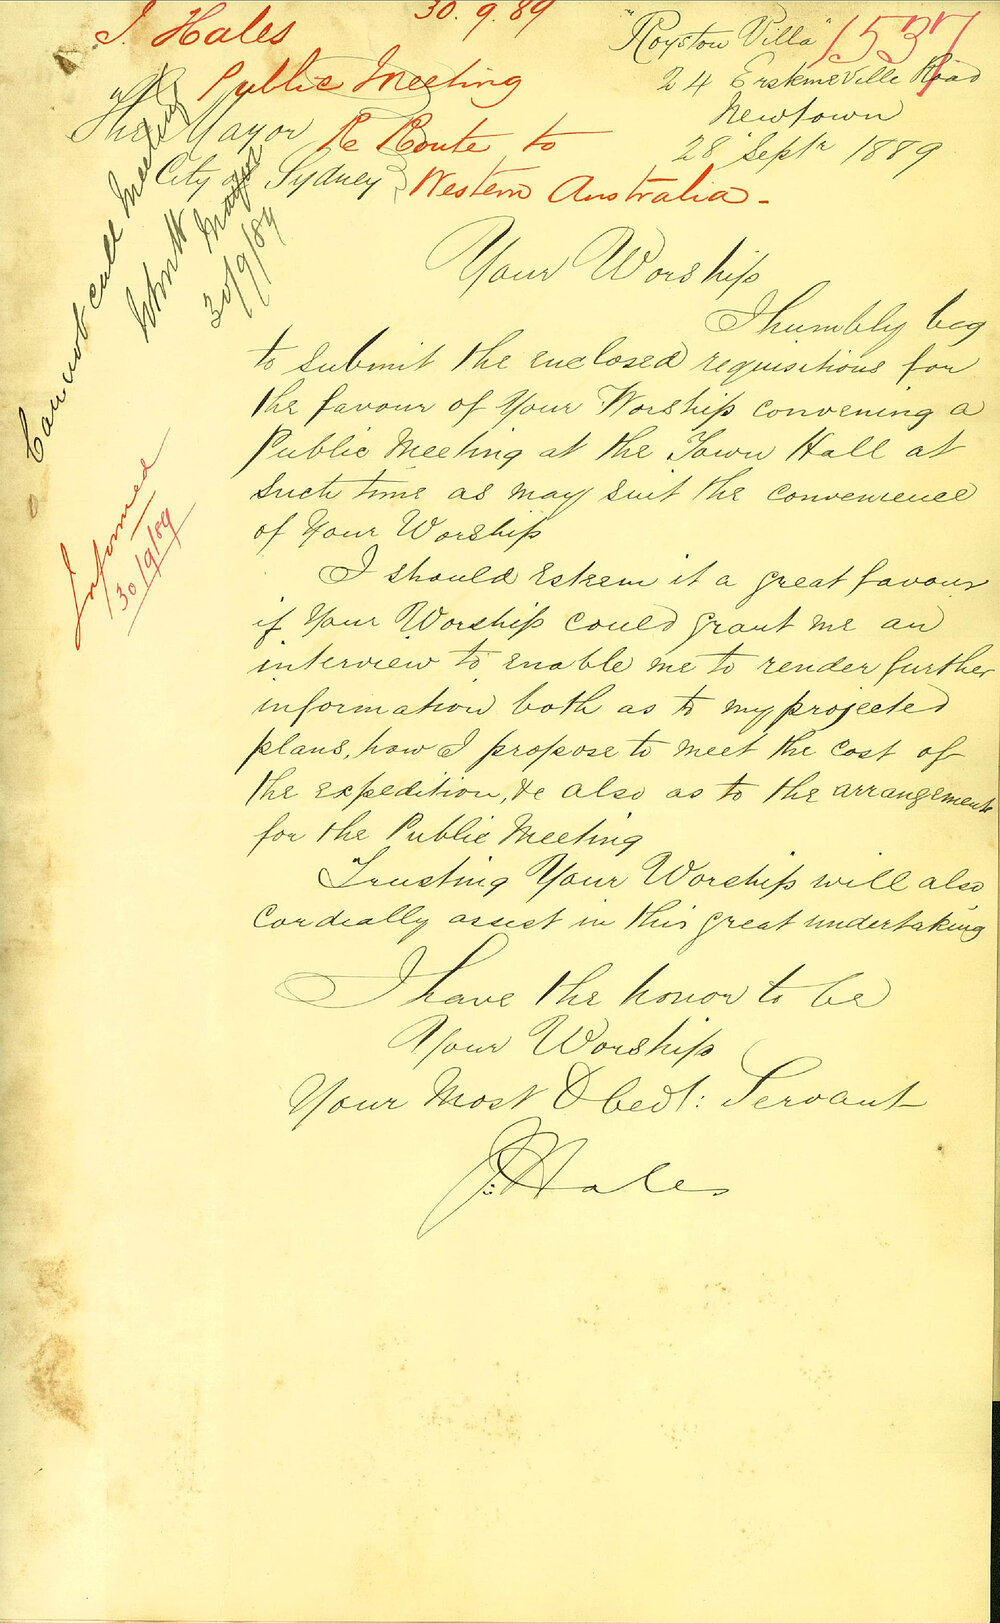 J. Hales
30.9.89
Public Meeting
Re Route to
Western Australia -
1537
"Royston Villa"
24 Erskineville Road
Newtown
28 Septr 1889
The Mayor
City of Sydney
Cannot call Meeting
Mayor
30/9/89
Informed
30/9/89
Your Worship
I humbly beg
to submit the enclosed requisitions for
the favour of Your Worship convening a
Public Meeting at the Town Hall at
such time as may suit the convenience
of Your Worship
I should Esteem it a great favour
if Your Worship could grant me an
interview to enable me to render further
information both as to my projected
plans, how I propose to meet the cost of
the expedition, &c also as to the arrangements
for the Public Meeting
Trusting Your Worship will also
cordially assist in this great undertaking
I have the honor to be
Your Worship
Your Most Obedt: Servant
J: Hales